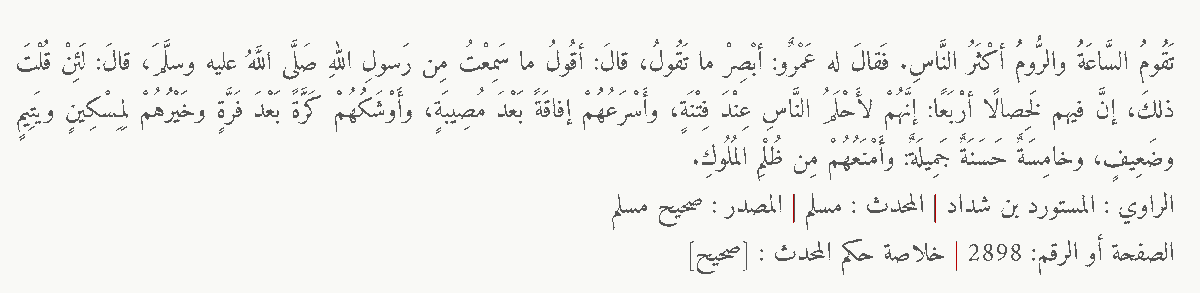 تَقُومُ السَّاعَةُ والرُّومُ أكْثَرُ النَّاسِ. فَقالَ له عَمْرٌو: أبْصِرْ ما تَقُولُ، قالَ: أقُولُ ما سَمِعْتُ مِن رَسولِ اللهِ صَلَّى اللَّهُ عليه وسلَّمَ، قالَ: لَئِنْ قُلْتَ
ذلكَ، إنَّ فيهم لَخِصالًا أرْبَعًا: إنَّهُمْ لأَحْلَمُ النَّاسِ عِنْدَ فِتْنَةٍ، وأَسْرَعُهُمْ إفاقَةً بَعْدَ مُصِيبَةٍ، وأَوْشَكُهُمْ كَرَّةً بَعْدَ فَرَّةٍ وخَيْرُهُمْ لِمِسْكِينٍ ويَتِيمٍ
وضَعِيفٍ، وخامِسَةٌ حَسَنَةٌ جَمِيلَةٌ: وأَمْنَعُهُمْ مِن ظُلْمِ المُلُوكِ.
الراوي : المستورد بن شداد | المحدث : مسلم | المصدر : صحيح مسلم
الصفحة أو الرقم: 2898 | خلاصة حكم المحدث : [صحيح]